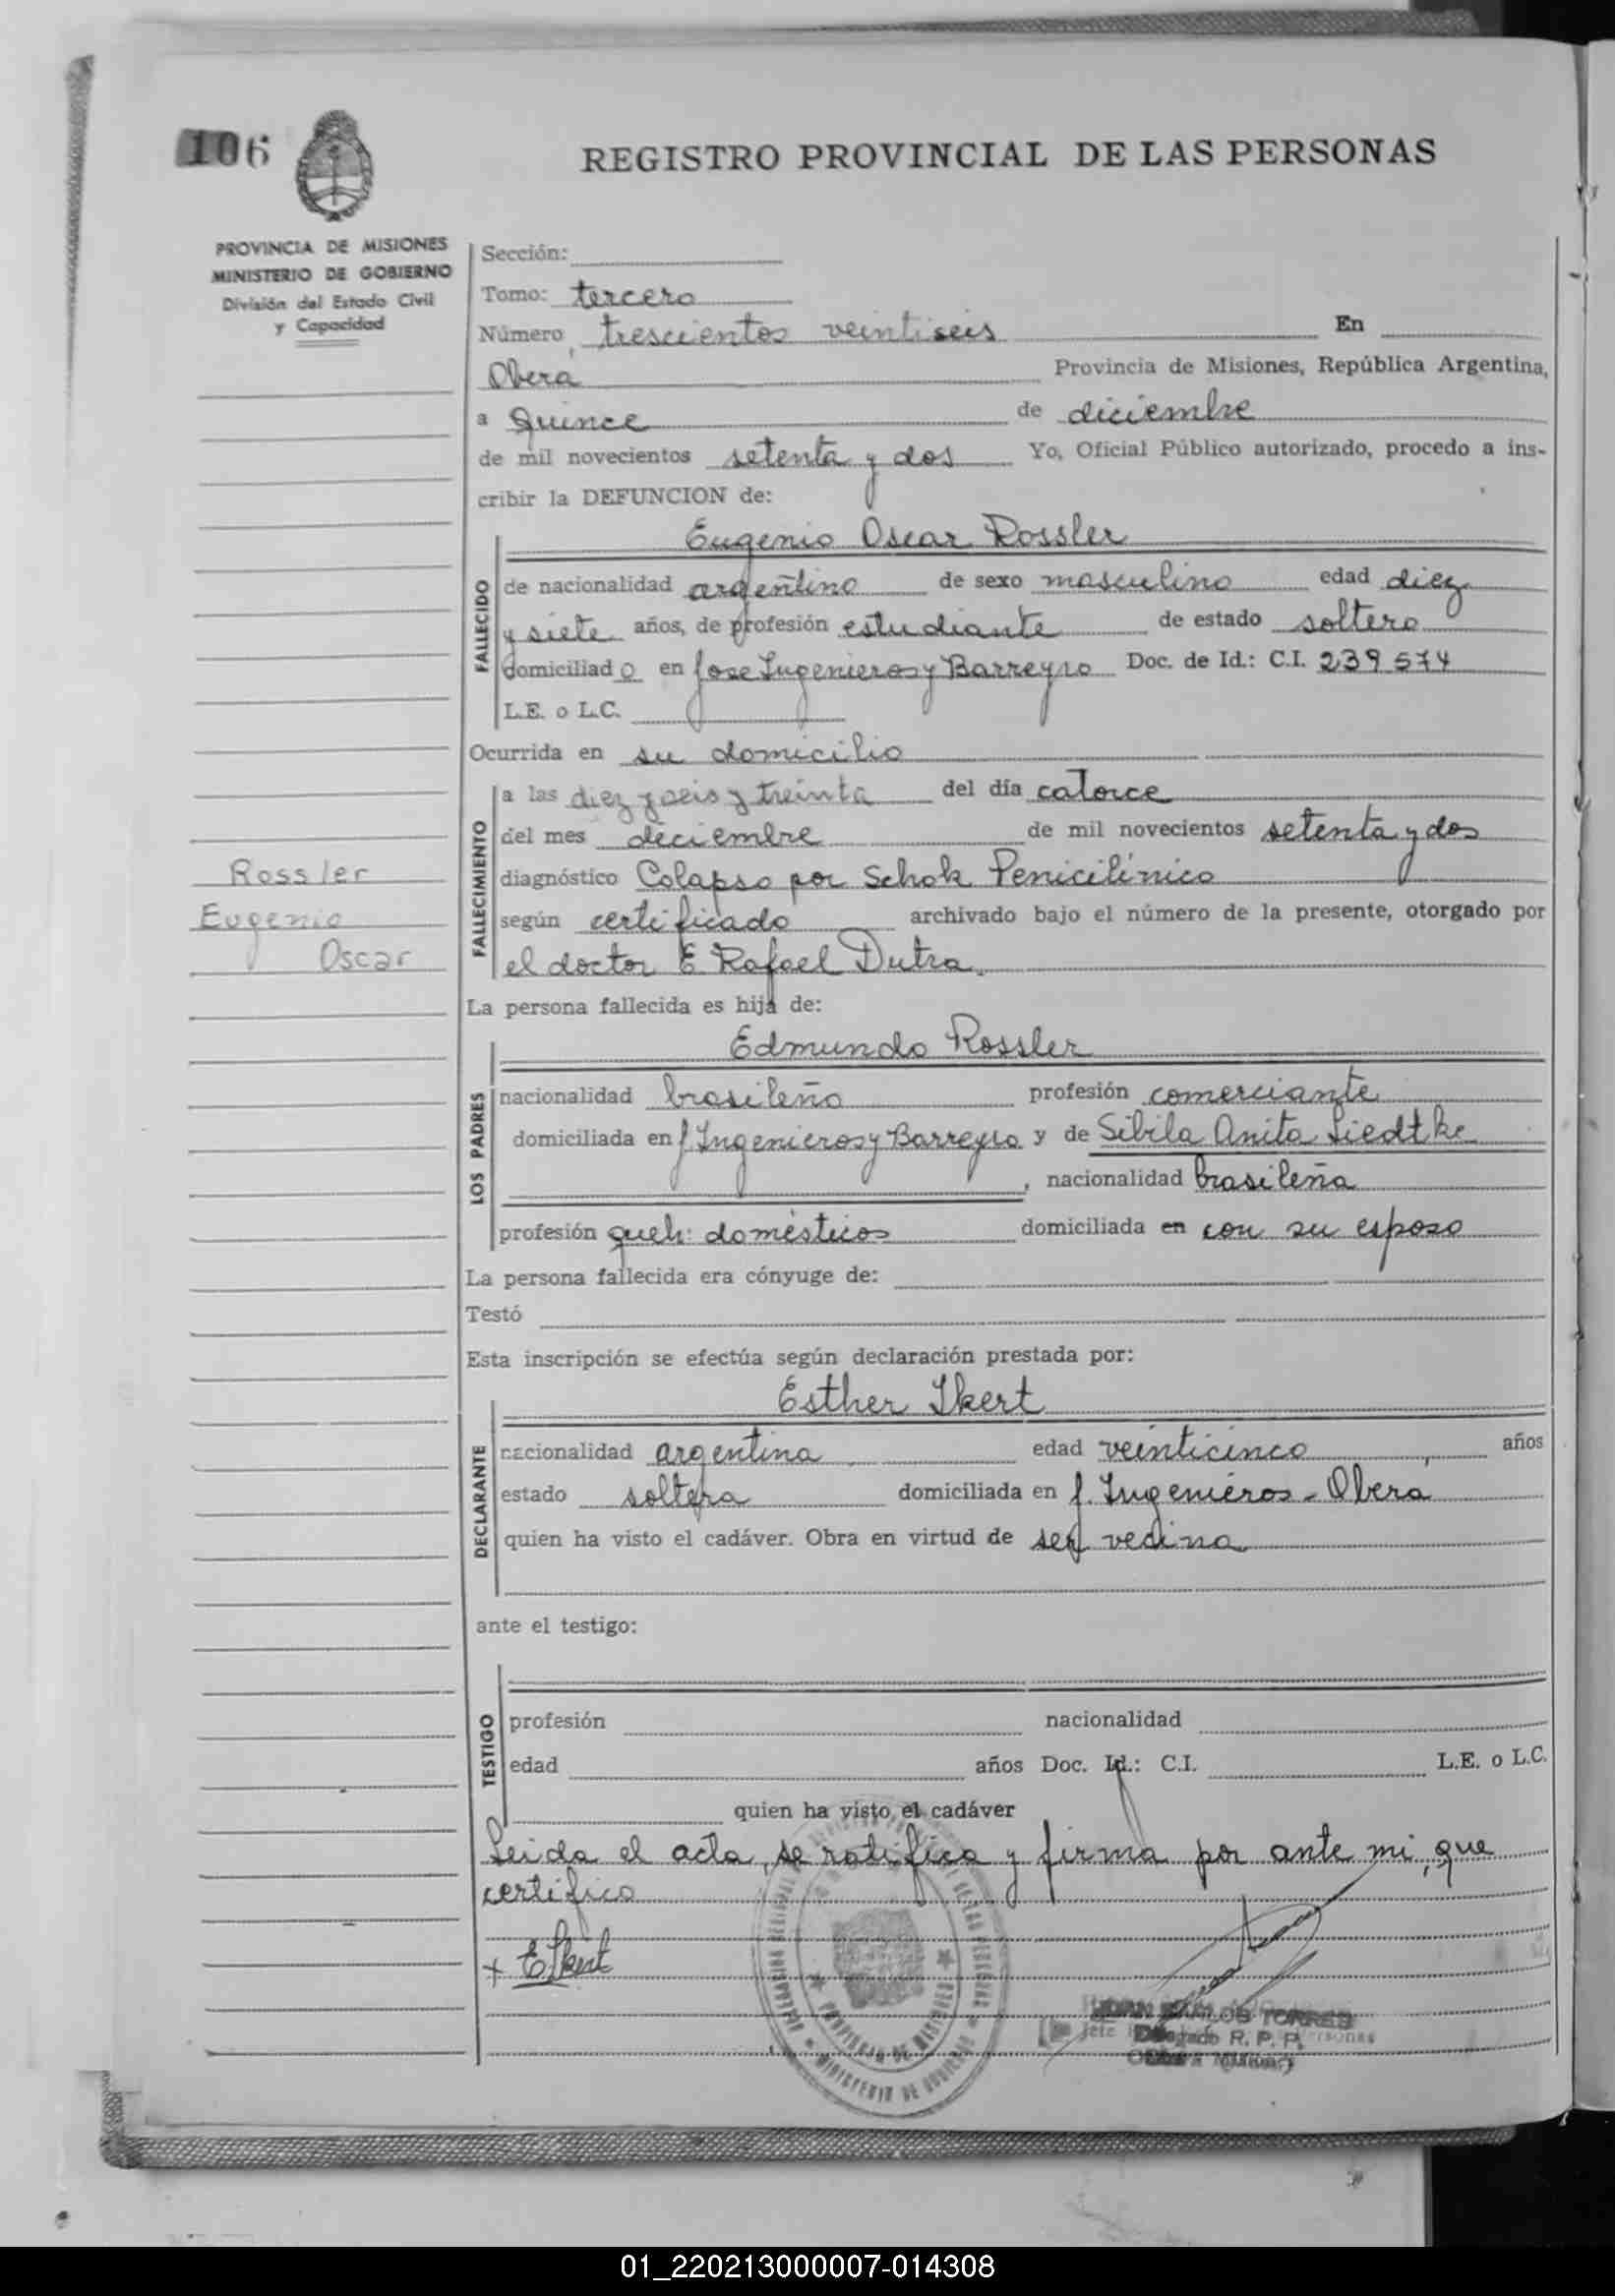 106
REGISTRO PROVINCIAL DE LAS PERSONAS
PROVINCIA DE MISIONES
MINISTERIO DE GOBIERNO
División del Estado Civil
y Capacidad
Sección:
Tomo: tercero
Número trescientos veintiseis En
Obera Provincia de Misiones, República Argentina,
a quince de diciembre
de mil novecientos setenta y dos Yo, Oficial Público autorizado, procedo a ins-
cribir la DEFUNCION de:
Eugenio Oscar Rossler
FALLECIDO
de nacionalidad argentino de sexo masculino edad diez
y siete años, de profesión estudiante de estado soltero
domiciliado en Jose Ingenieros y Barreyro Doc. de Id.: C.I. 239574
L.E. o L.C.
Ocurrida en su domicilio
FALLECIMIENTO
a las diez y seis y treinta del día catorce
del mes deciembre de mil novecientos setenta y dos
diagnóstico Colapso por Schok Penicilínico
según certificado archivado bajo el número de la presente, otorgado por
el doctor E Rafael Dutra.
Rossler
Eugenio
Oscar
La persona fallecida es hija de:
Edmundo Rossler
LOS PADRES
nacionalidad brasileño profesión comerciante
domiciliada en J. Ingenieros y Barreyro y de Sibila Anita Liedtke
, nacionalidad brasileña
profesión queh: domésticos domiciliada en con su esposo
La persona fallecida era cónyuge de:
Testó
Esta inscripción se efectúa según declaración prestada por:
Esther Ikert
DECLARANTE
nacionalidad argentina edad veinticinco años
estado soltera domiciliada en J. Ingenieros - Obera
quien ha visto el cadáver. Obra en virtud de ser vecina
ante el testigo:
TESTIGO
profesión nacionalidad
edad años Doc. Id.: C.I. L.E. o L.C.
quien ha visto el cadáver
Leida el acta, se ratifica y firma por ante mi, que
certifico
+ EIkert
PROVINCIA DE MISIONES
MINISTERIO DE GOBIERNO
TORRES
Delegado R. P. P.
01_220213000007-014308